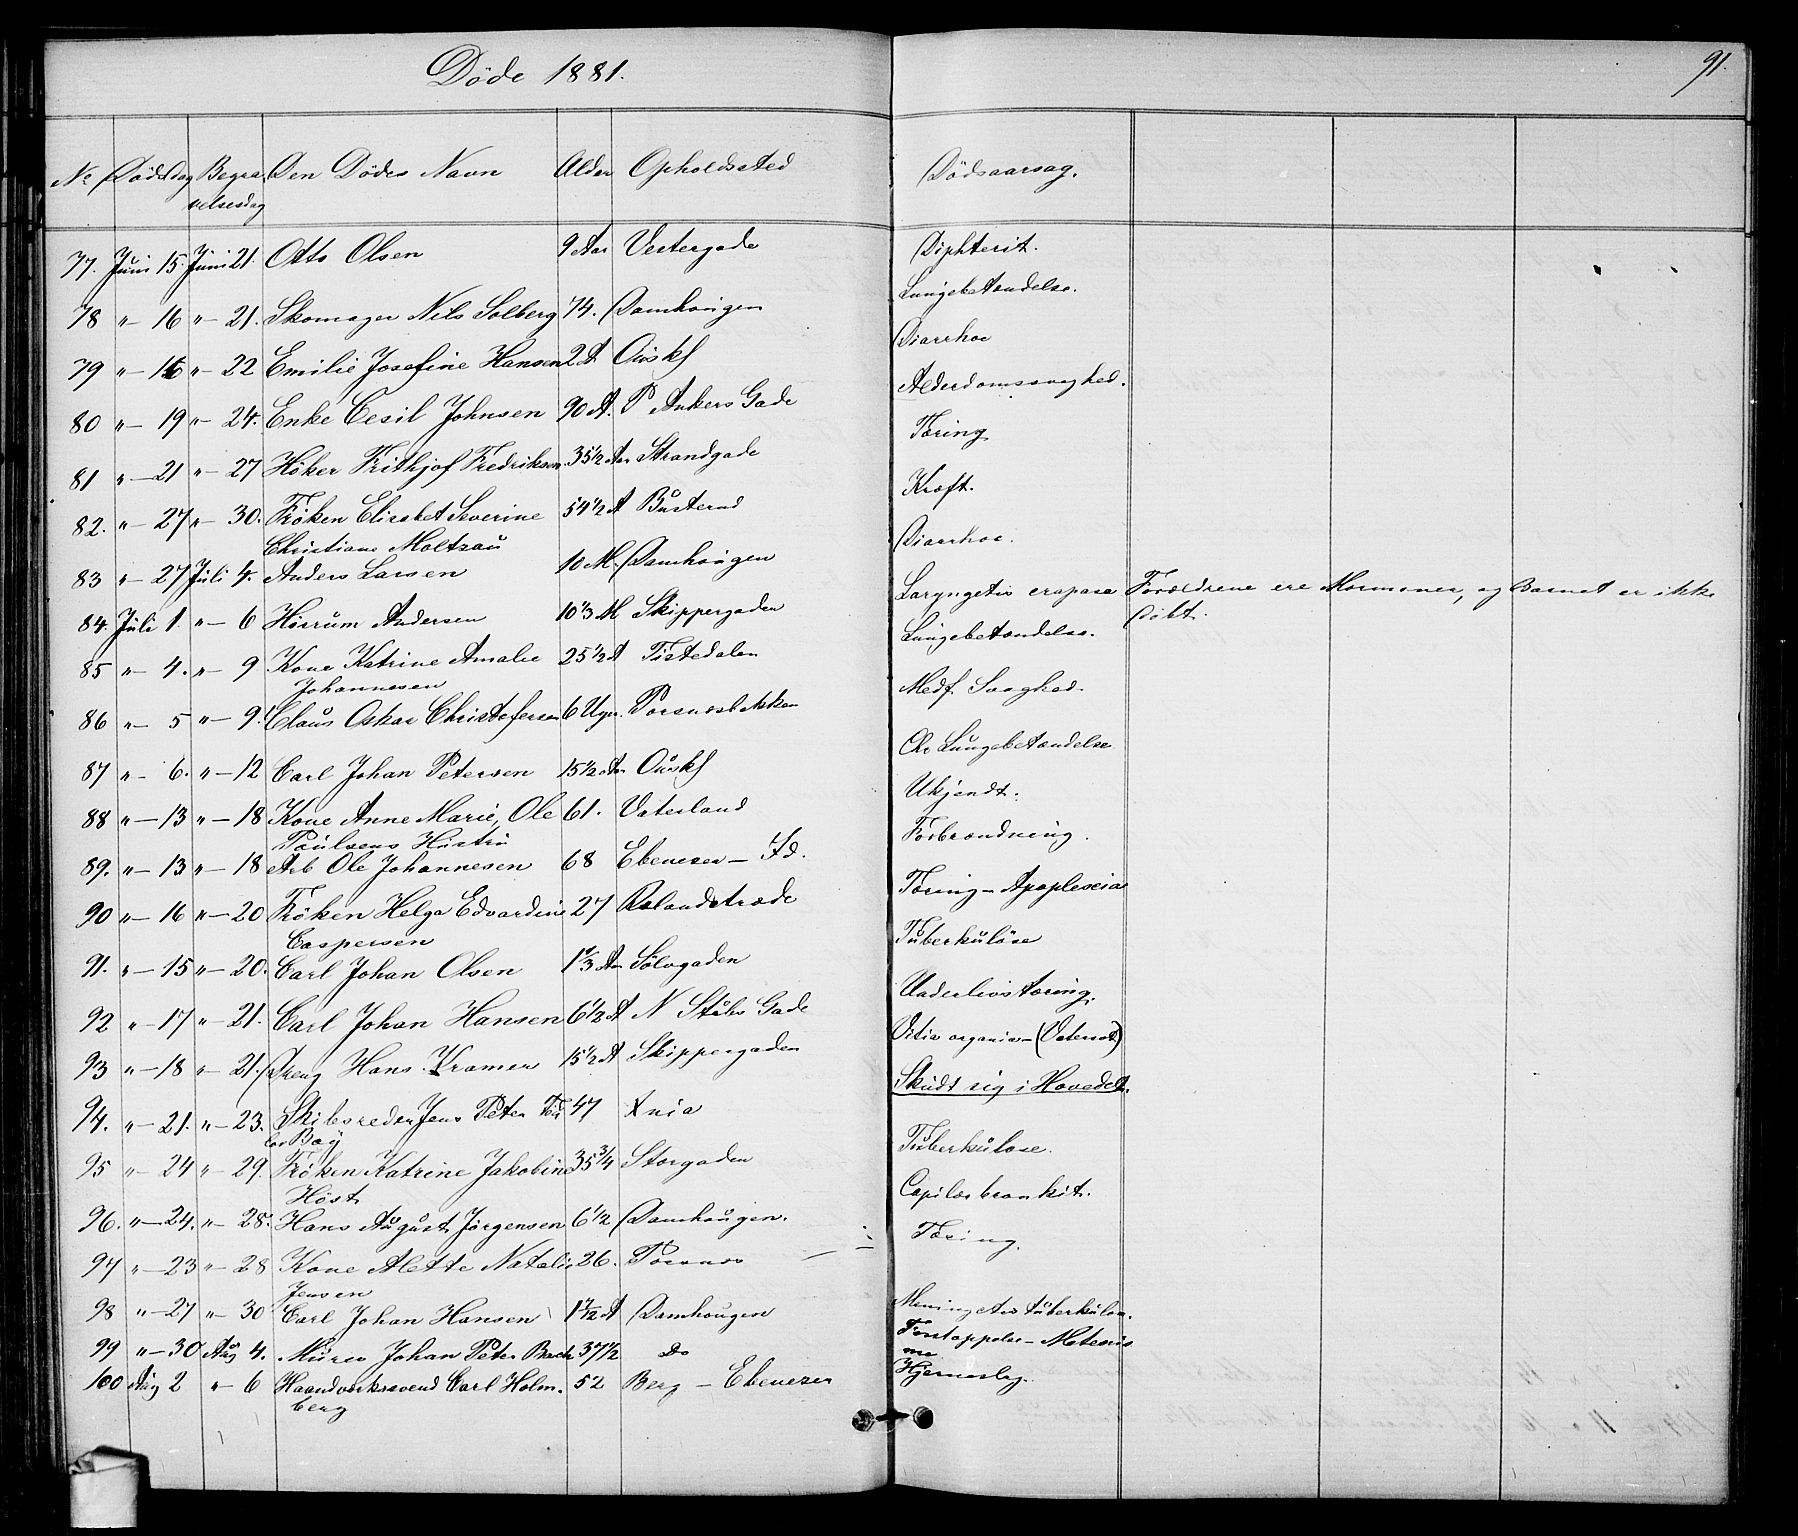 Døde 1881.
91.
No Dødsdag Begravelsesdag Den Dødes Navn Alder Opholdssted Dødsaarsag.
77. Juni 15. Juni 21. Otto Olsen 9 Aar Vestergade Diphterit.
78 " 16 " 21. Skomager Nils Solberg 74. Damhaugen Lungebetændelse.
79 " 16 " 22 Emilie Josefine Hansen 2 A Ouskf Diarrhoe
80 " 19 " 24. Enke Cesil Johnsen 90 A. P Ankers Gade Alderdomssvaghed.
81 " 21 " 27 Høker Frithjof Fredriksen 35 1/2 Aar Strandgade Tæring
82. " 27 " 30. Frøken Elisabet Severine 54 1/2 A Busterud Kræft.
Christiane Moltzau
83 " 27 Juli 4. Anders Larsen 10 M. Damhaugen Diarrhoe.
84. Juli 1. " 6 Hörrum Andersen 10 1/3 M Skippergaden Laryngetis crapøse Forældrene ere Mormoner, og Barnet er ikke
døbt.
85 " 4. " 9. Kone Katrine Amalie 25 1/2 A Tistedalen Lungebetændelse.
Johannesen
86 " 5 " 9. Claus Oskar Christofersen 6 Uger. Porsnesbakken Medf. Svaghed.
87 " 6. " 12 Carl Johan Petersen 15 1/2 Aar Ouskf Chr Lungebetændelse
88 " 13 " 18 Kone Anne Marie, Ole 61. Vaterland Ukjendt.
Paulsens Hustru
89. " 13 " 18 Arb Ole Johannesen 68 Ebeneser — Id. Forbrændning.
90 " 16 " 20 Frøken Helga Edvardine 27 Rolandstræde Tæring — Apoplexia
Caspersen
91. " 15 " 20. Carl Johan Olsen 1 1/3 Aar Sølvgaden Tuberkulose
92 " 17 " 21. Carl Johan Hansen 6 1/2 A N Stubs Gade Underlivstæring.
93 " 18 " 21. Dreng Hans Kramer 15 1/2 A Skippergaden Vitia organia — (Vatersot)
94. " 21. " 23. Skibsreder Jens Peter 47 Xnia Skudt sig i Hovedet.
Bøy
95 " 24 " 29. Frøken Katrine Jakobine 35 3/4 Storgaden Tuberkulose.
Höst
96. " 24. " 28. Hans August Jørgensen 6 1/2 Damhaugen. Capilærbronkit.
97 " 23 " 28 Kone Alette Natalie 26. Porsnes Tæring.
Jensen
98 " 27 " 30 Carl Johan Hansen 1 7/12 A Damhaugen Meningetis tuberkulose.
99 " 30 Aug 4. Murer Johan Peter Bach 37 1/2 Do Forstoppelse —
100 Aug 2 " 6 Haandverkssvend Carl Holm- 52 Berg — Ebeneser Hjerneslag.
berg